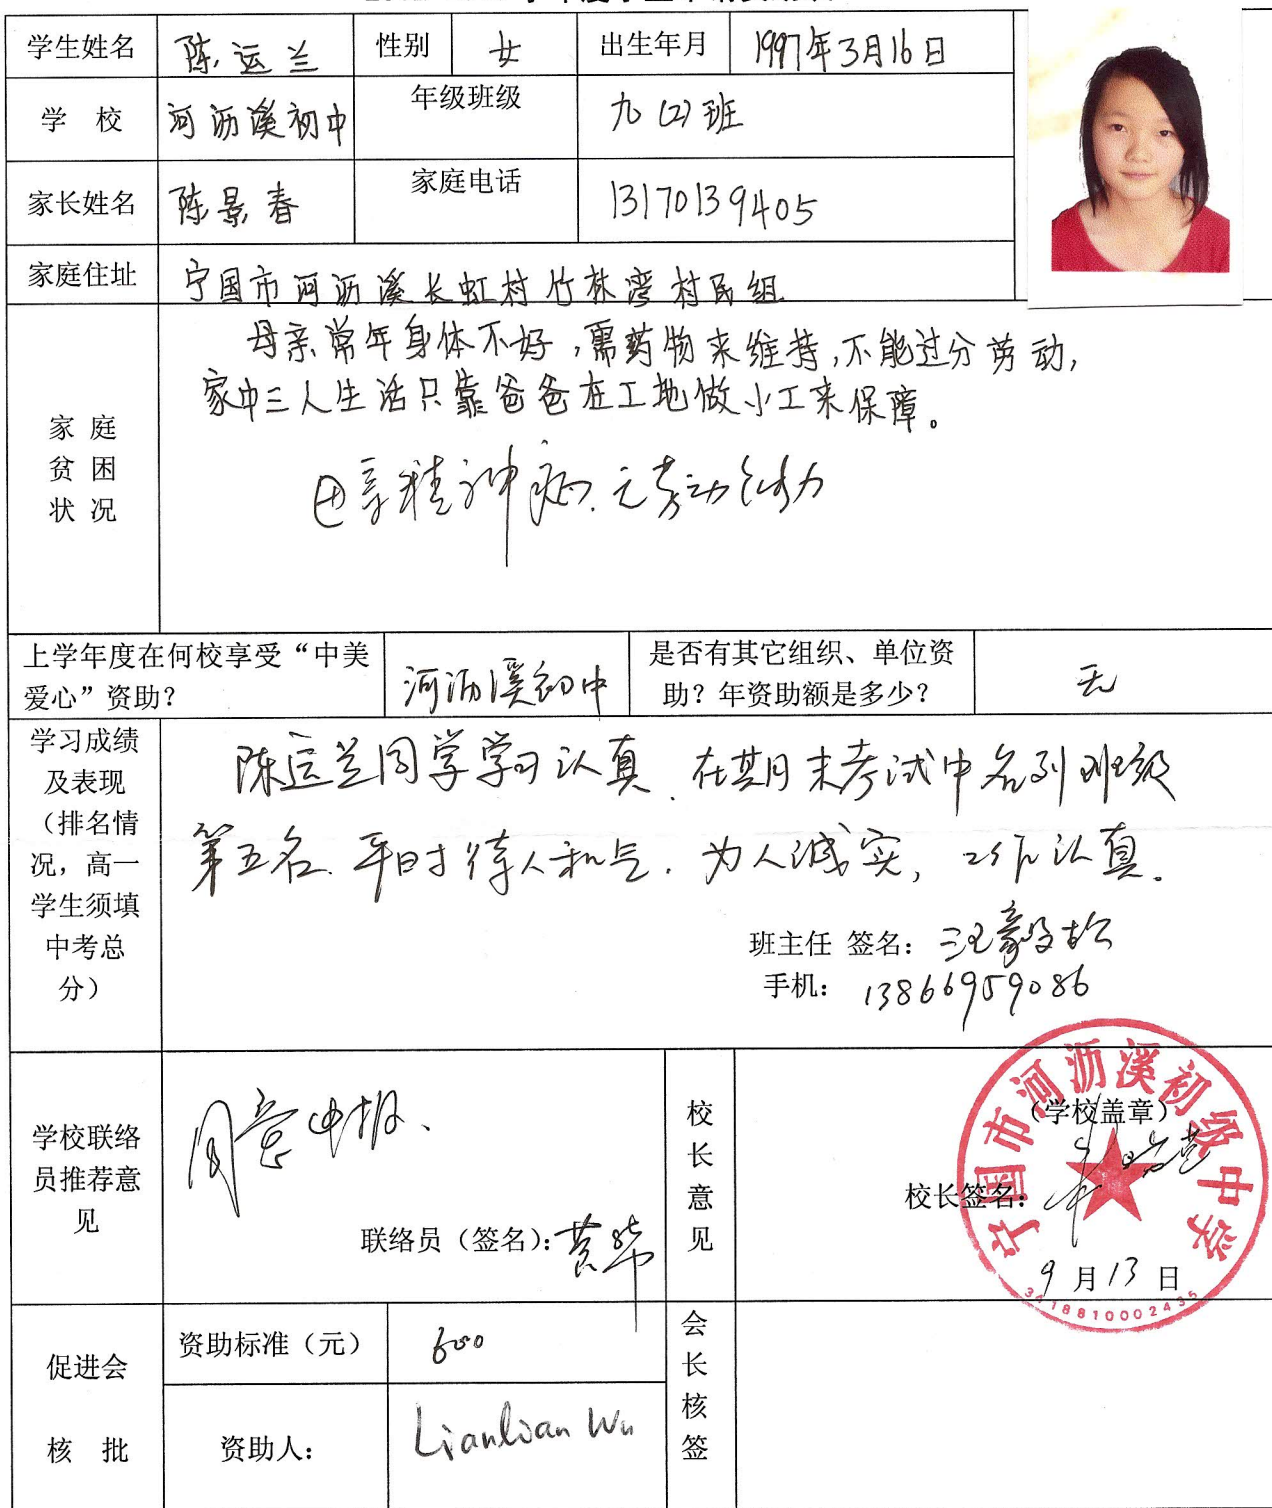 学生姓名 陈运兰 性别 女 出生年月 1997年3月16日
学 校 河沥溪初中 年级班级 九(2)班
家长姓名 陈景春 家庭电话 13170139405
家庭住址 宁国市河沥溪长虹村竹林湾村民组
家庭
贫困
状况
母亲常年身体不好,需药物来维持,不能过分劳动,
家中三人生活只靠爸爸在工地做小工来保障。
母亲精神病.无劳动能力
上学年度在何校享受“中美
爱心”资助?
河沥溪初中
是否有其它组织、单位资
助?年资助额是多少?
无
学习成绩
及表现
(排名情
况,高一
学生须填
中考总
分)
陈运兰同学学习认真.在期末考试中名列班级
第五名.平时待人和气.为人诚实,工作认真.
班主任 签名:
手机:13866959086
学校联络
员推荐意
见
同意申报、
联络员(签名):黄华
校
长
意
见
(学校盖章)
校长签名:
9月13日
宁国市河沥溪初级中学
3418810002435
促进会
核 批
资助标准(元) 600
资助人: Lianlian Wu
会
长
核
签